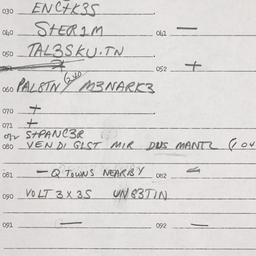 030 ENC+K3S
040 S+ER1M 041 —
050 TAL3SKU.TN
052 +
060 PALSTN/ M3NARK3
070 +
071 +
072 S+PANC3R
080 VEN DI GLST MIR DUS MANTL
081 — Q TOWNS NEARBY 082
090 VOLT 3 X 3S UN83TIN
091 — 092 —